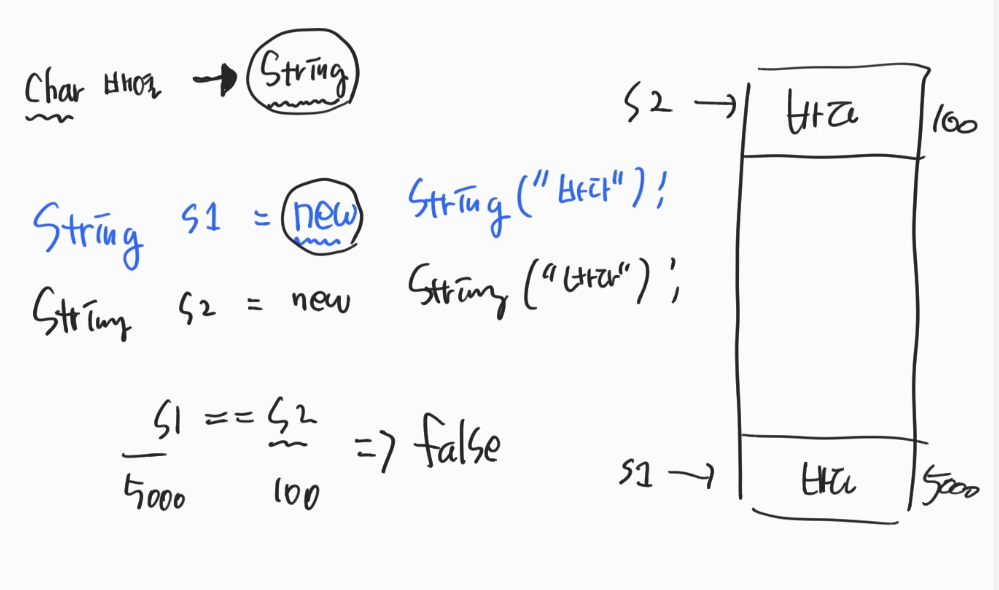 Char 배열 → String
String s1 = new String("바다");
String s2 = new String("바다");
s1 == s2 => false
5000 100
s2 → 바다 100
s1 → 바다 5000